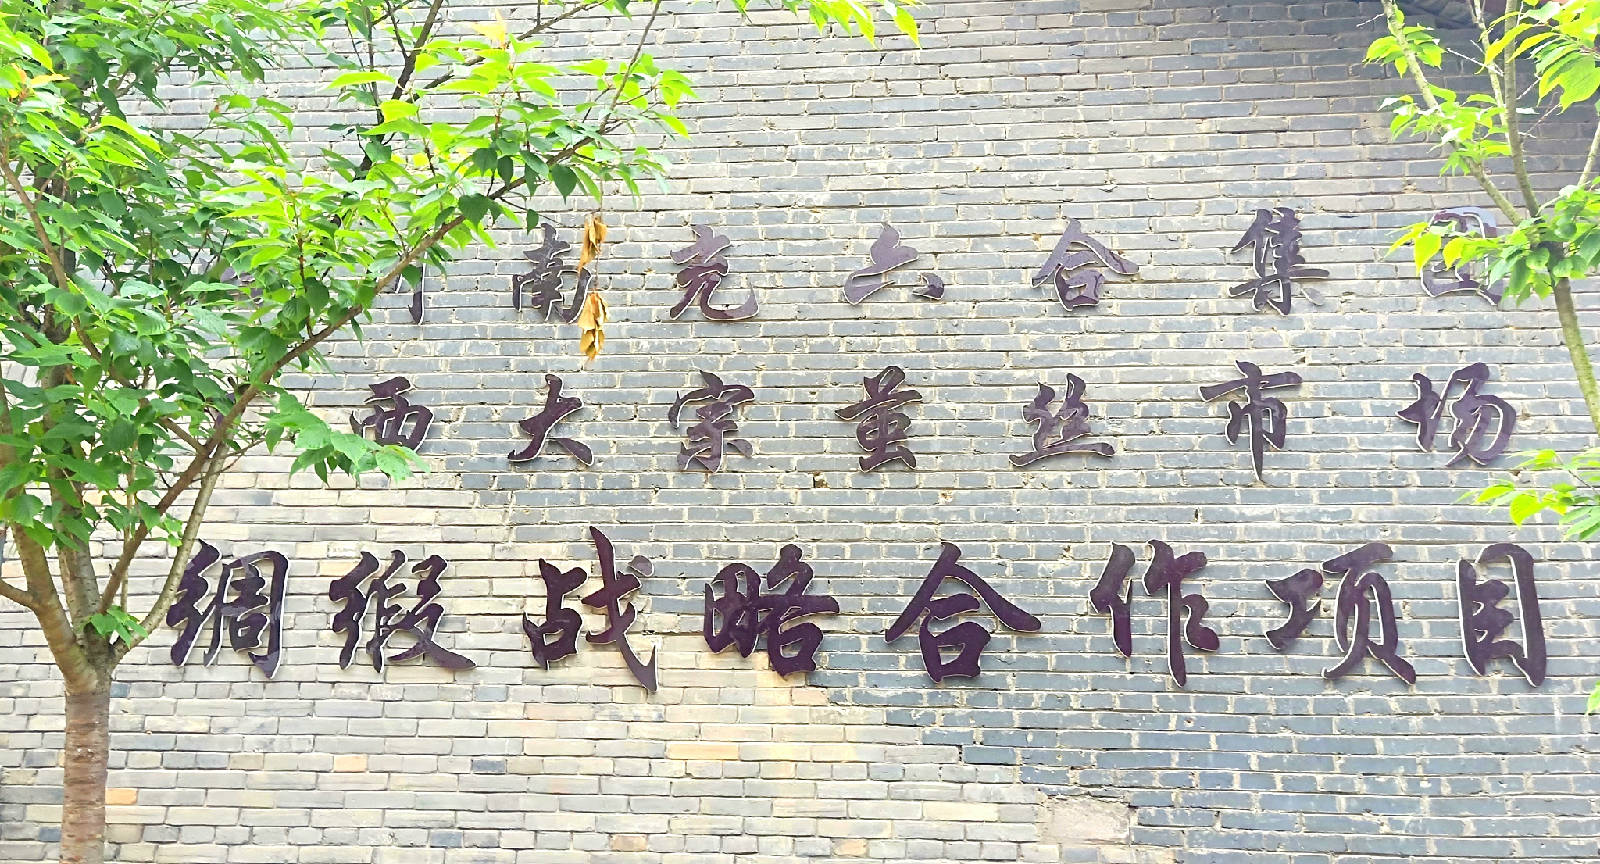 川南充六合集团
西大宗茧丝市场
绸缎战略合作项目